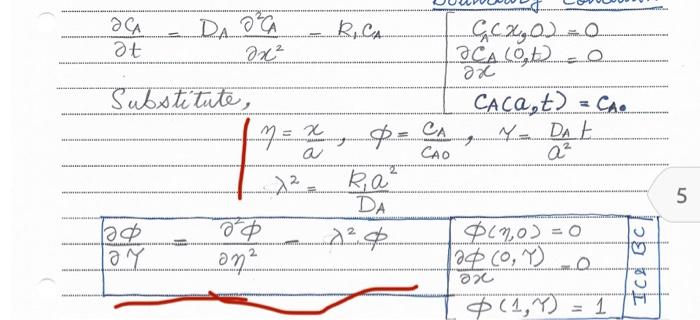 ∂C_A/∂t = D_A ∂²C_A/∂x² - k₁C_A
C_A(x,0) = 0
∂C_A/∂x (0,t) = 0
C_A(a,t) = C_A0
Substitute,
η = x/a , φ = C_A/C_A0 , γ = D_A t/a²
λ² = k₁a²/D_A
∂φ/∂γ = ∂²φ/∂η² - λ²φ
φ(η,0) = 0
∂φ(0,γ)/∂x = 0
φ(1,γ) = 1
IC & BC
5